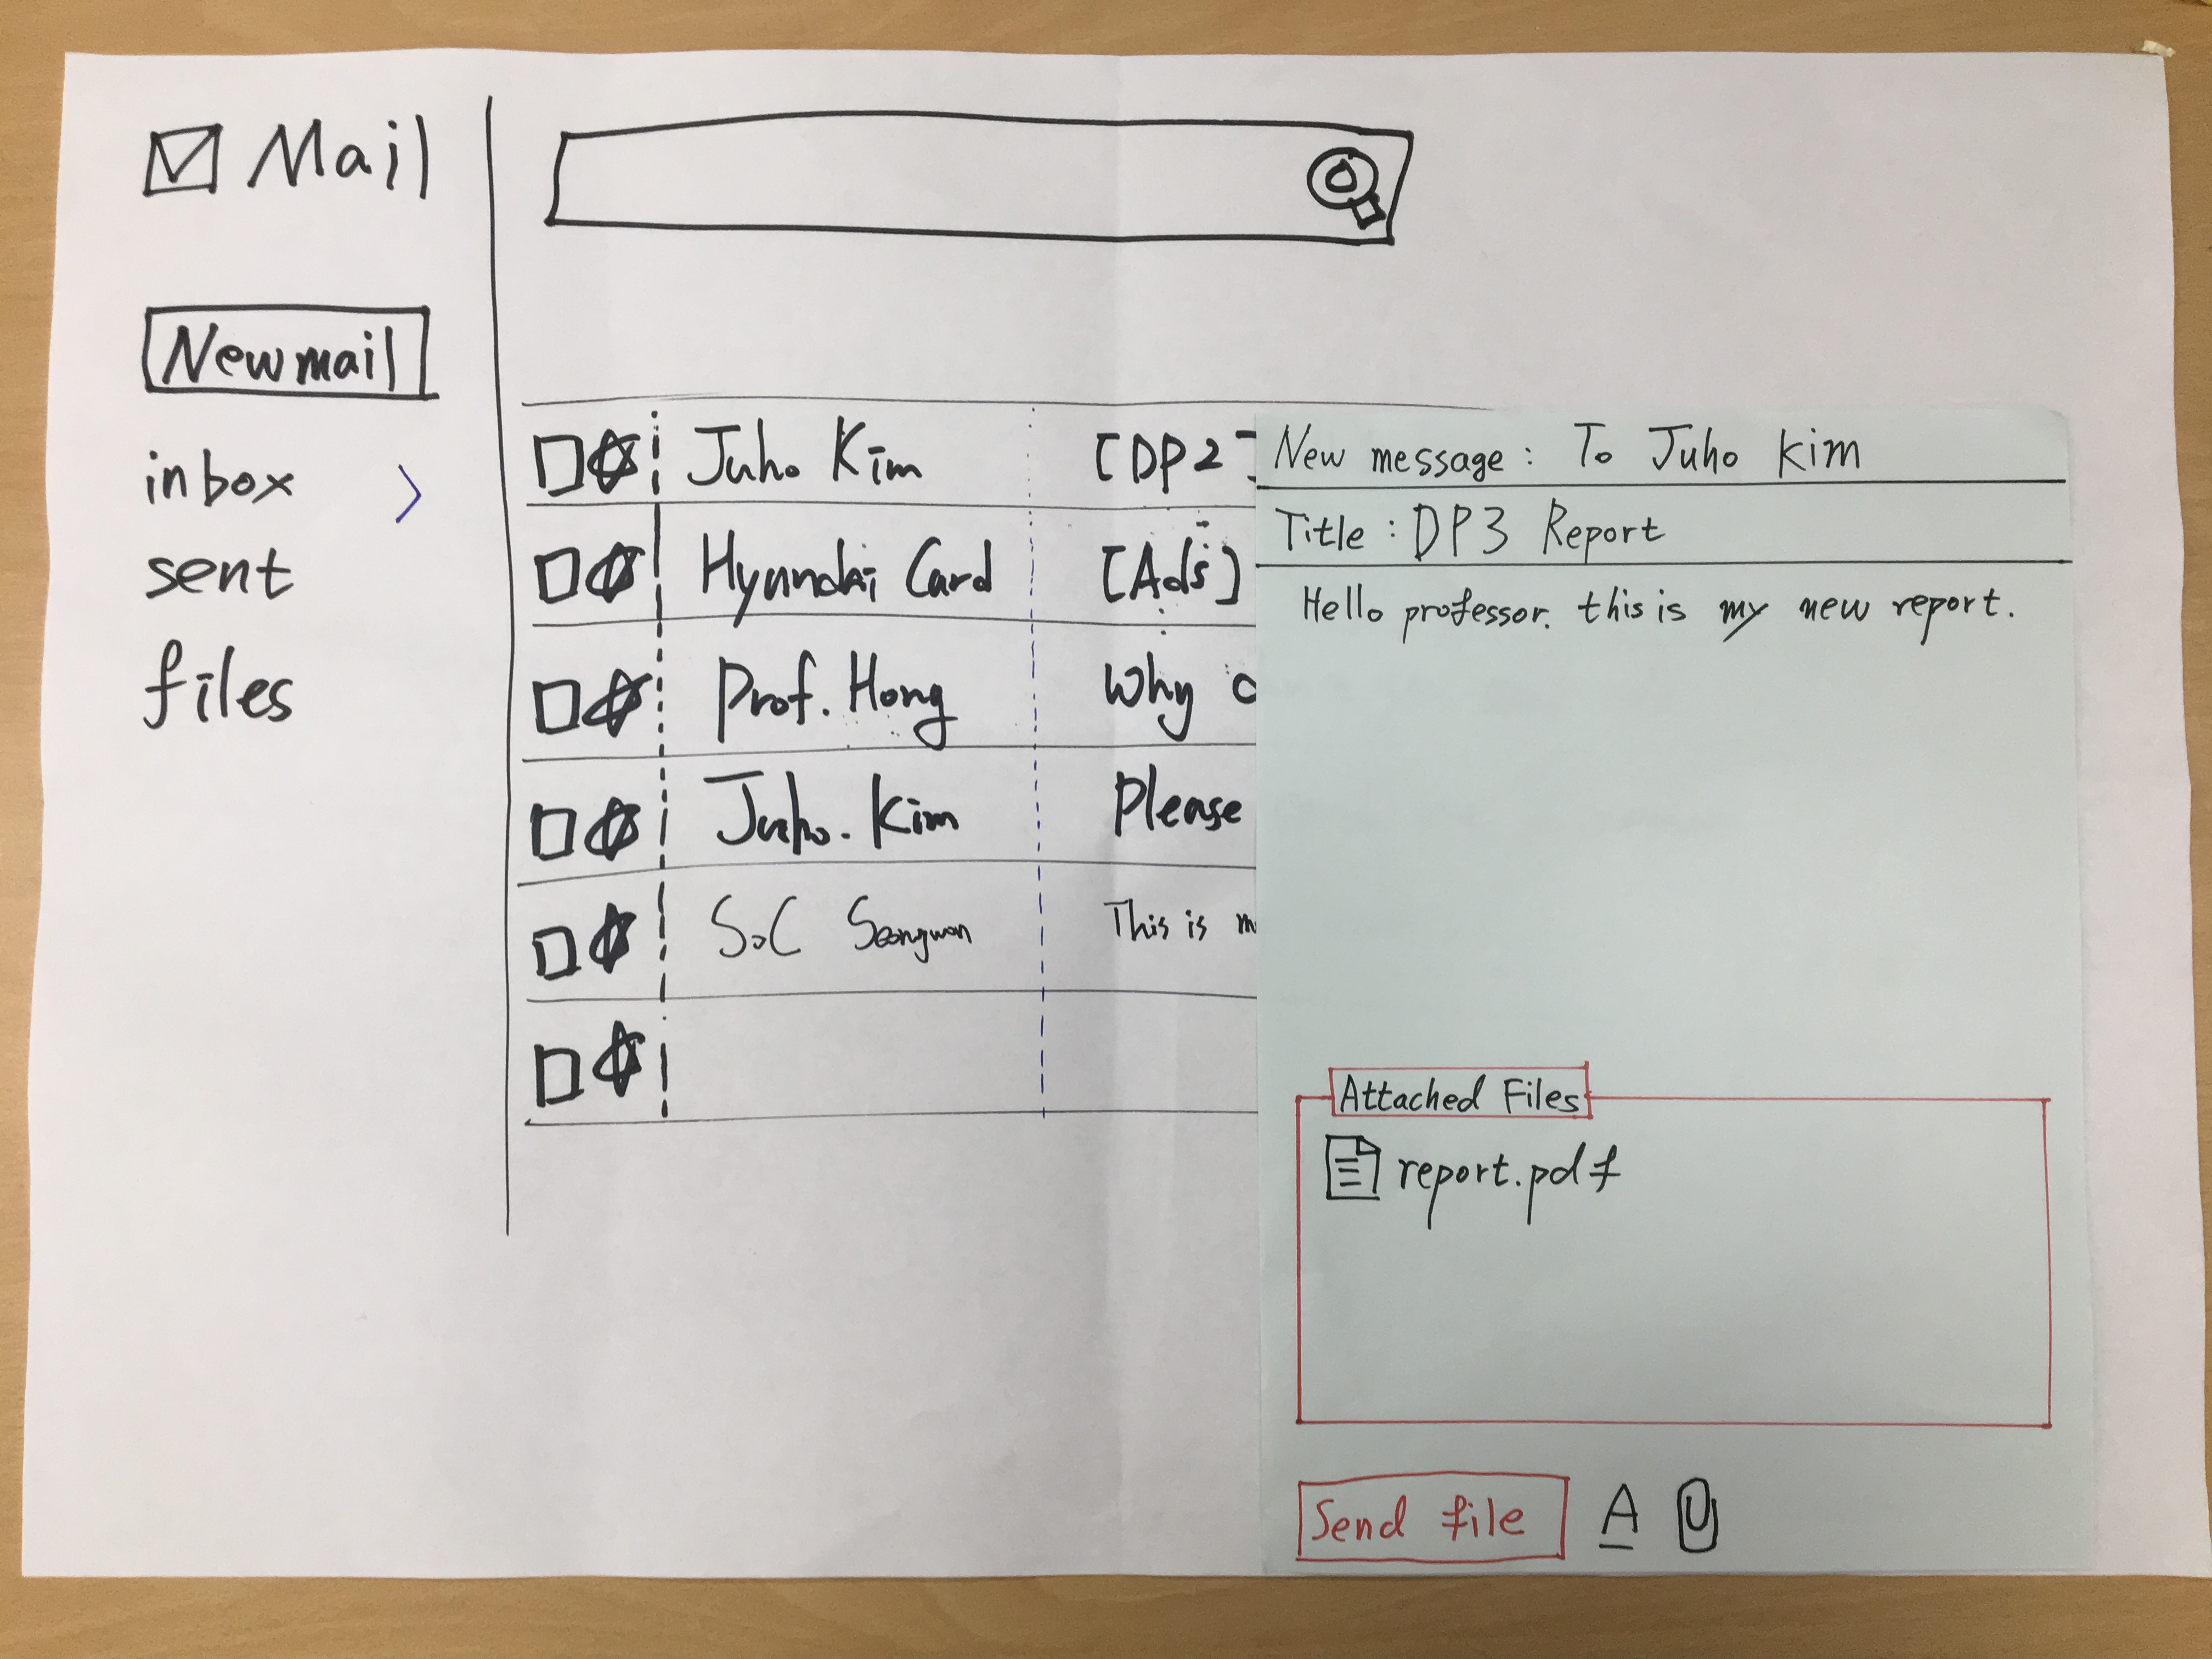 Mail
New mail
inbox >
sent
files
Juho Kim
[DP2]
Hyundai Card
[Ads]
Prof. Hong
Why
Juho. Kim
Please
SoC Seongwon
This is
New message : To Juho Kim
Title : DP3 Report
Hello professor. this is my new report.
Attached Files
report.pdf
Send file A